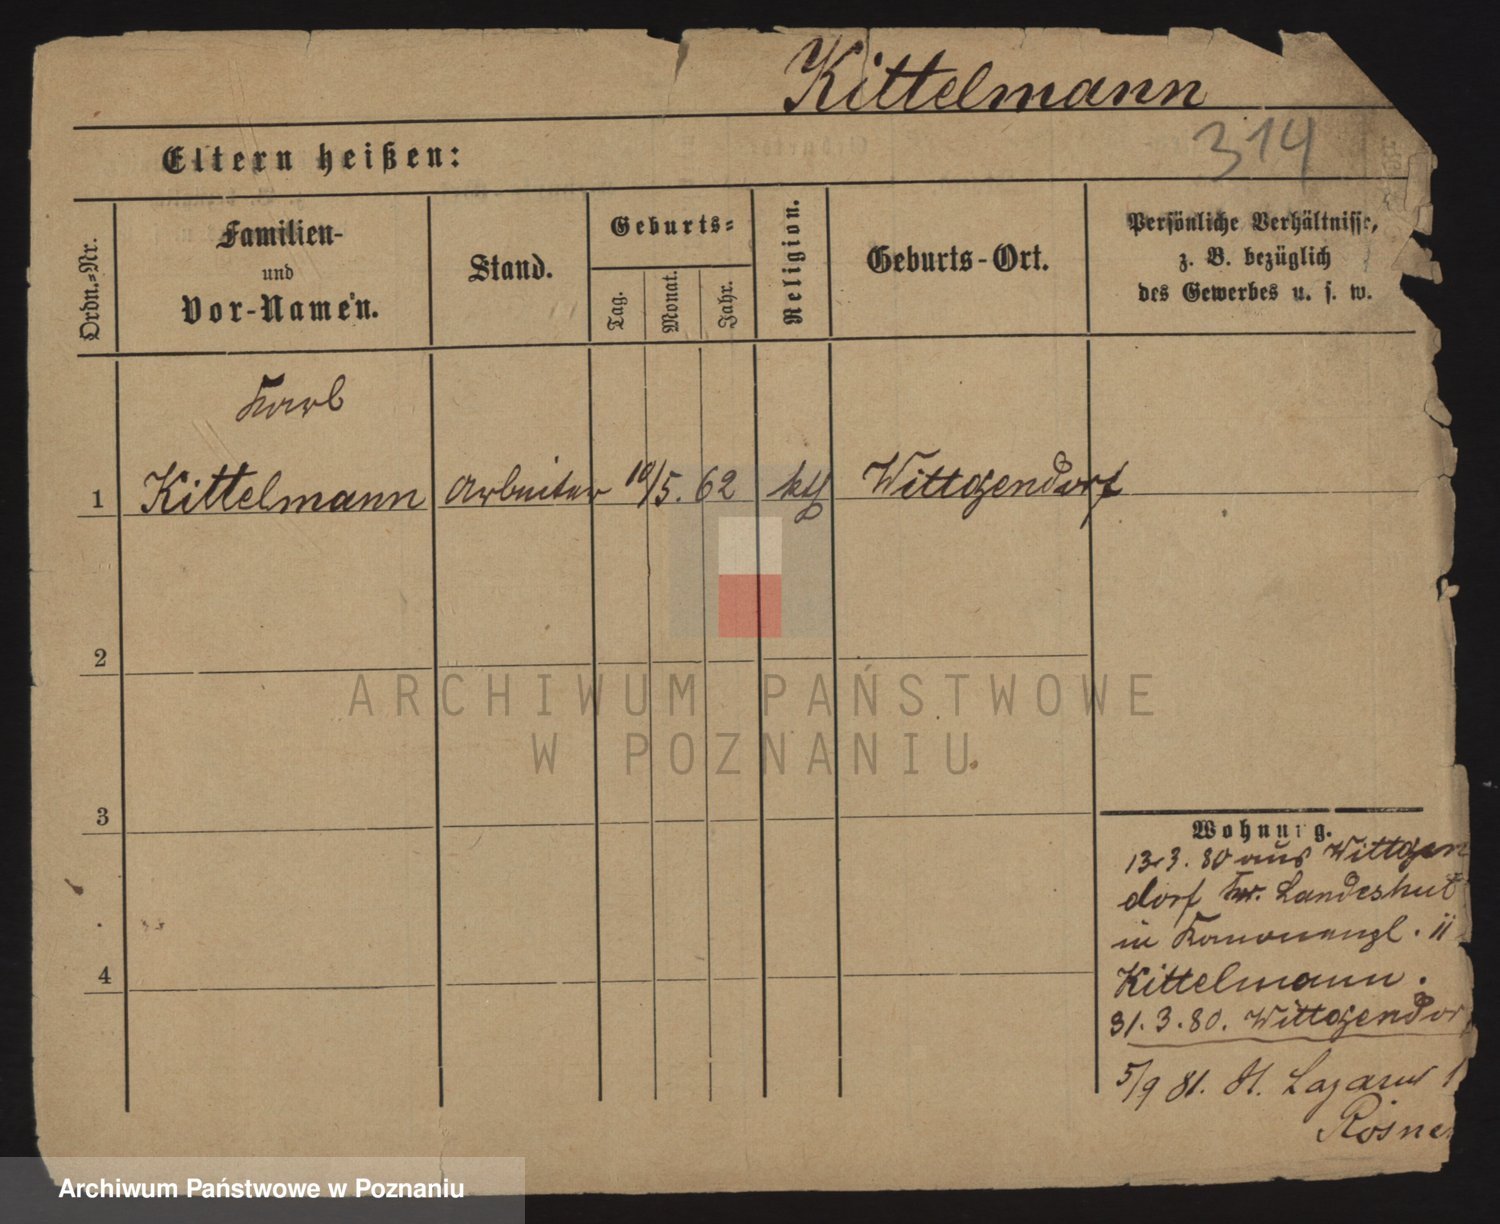 Kittelmann
314
Eltern heißen:
Ordn.-Nr.
Familien-
und
Vor-Namen.
Stand.
Geburts-
Tag.
Monat.
Jahr.
Religion.
Geburts-Ort.
Persönliche Verhältnisse,
z. B. bezüglich
des Gewerbes u. s. w.
Karl
1 Kittelmann Arbeiter 10/5. 62 kth Wittgendorf
2
3
4
Wohnung.
13.3. 80 aus Wittgen
dorf Kr. Landeshut
in Kanonenpl. 11
Kittelmann.
31.3.80. Wittgendor
5/9 81. St. Lazarus 1
Rösne
ARCHIWUM PAŃSTWOWE
W POZNANIU
Archiwum Państwowe w Poznaniu